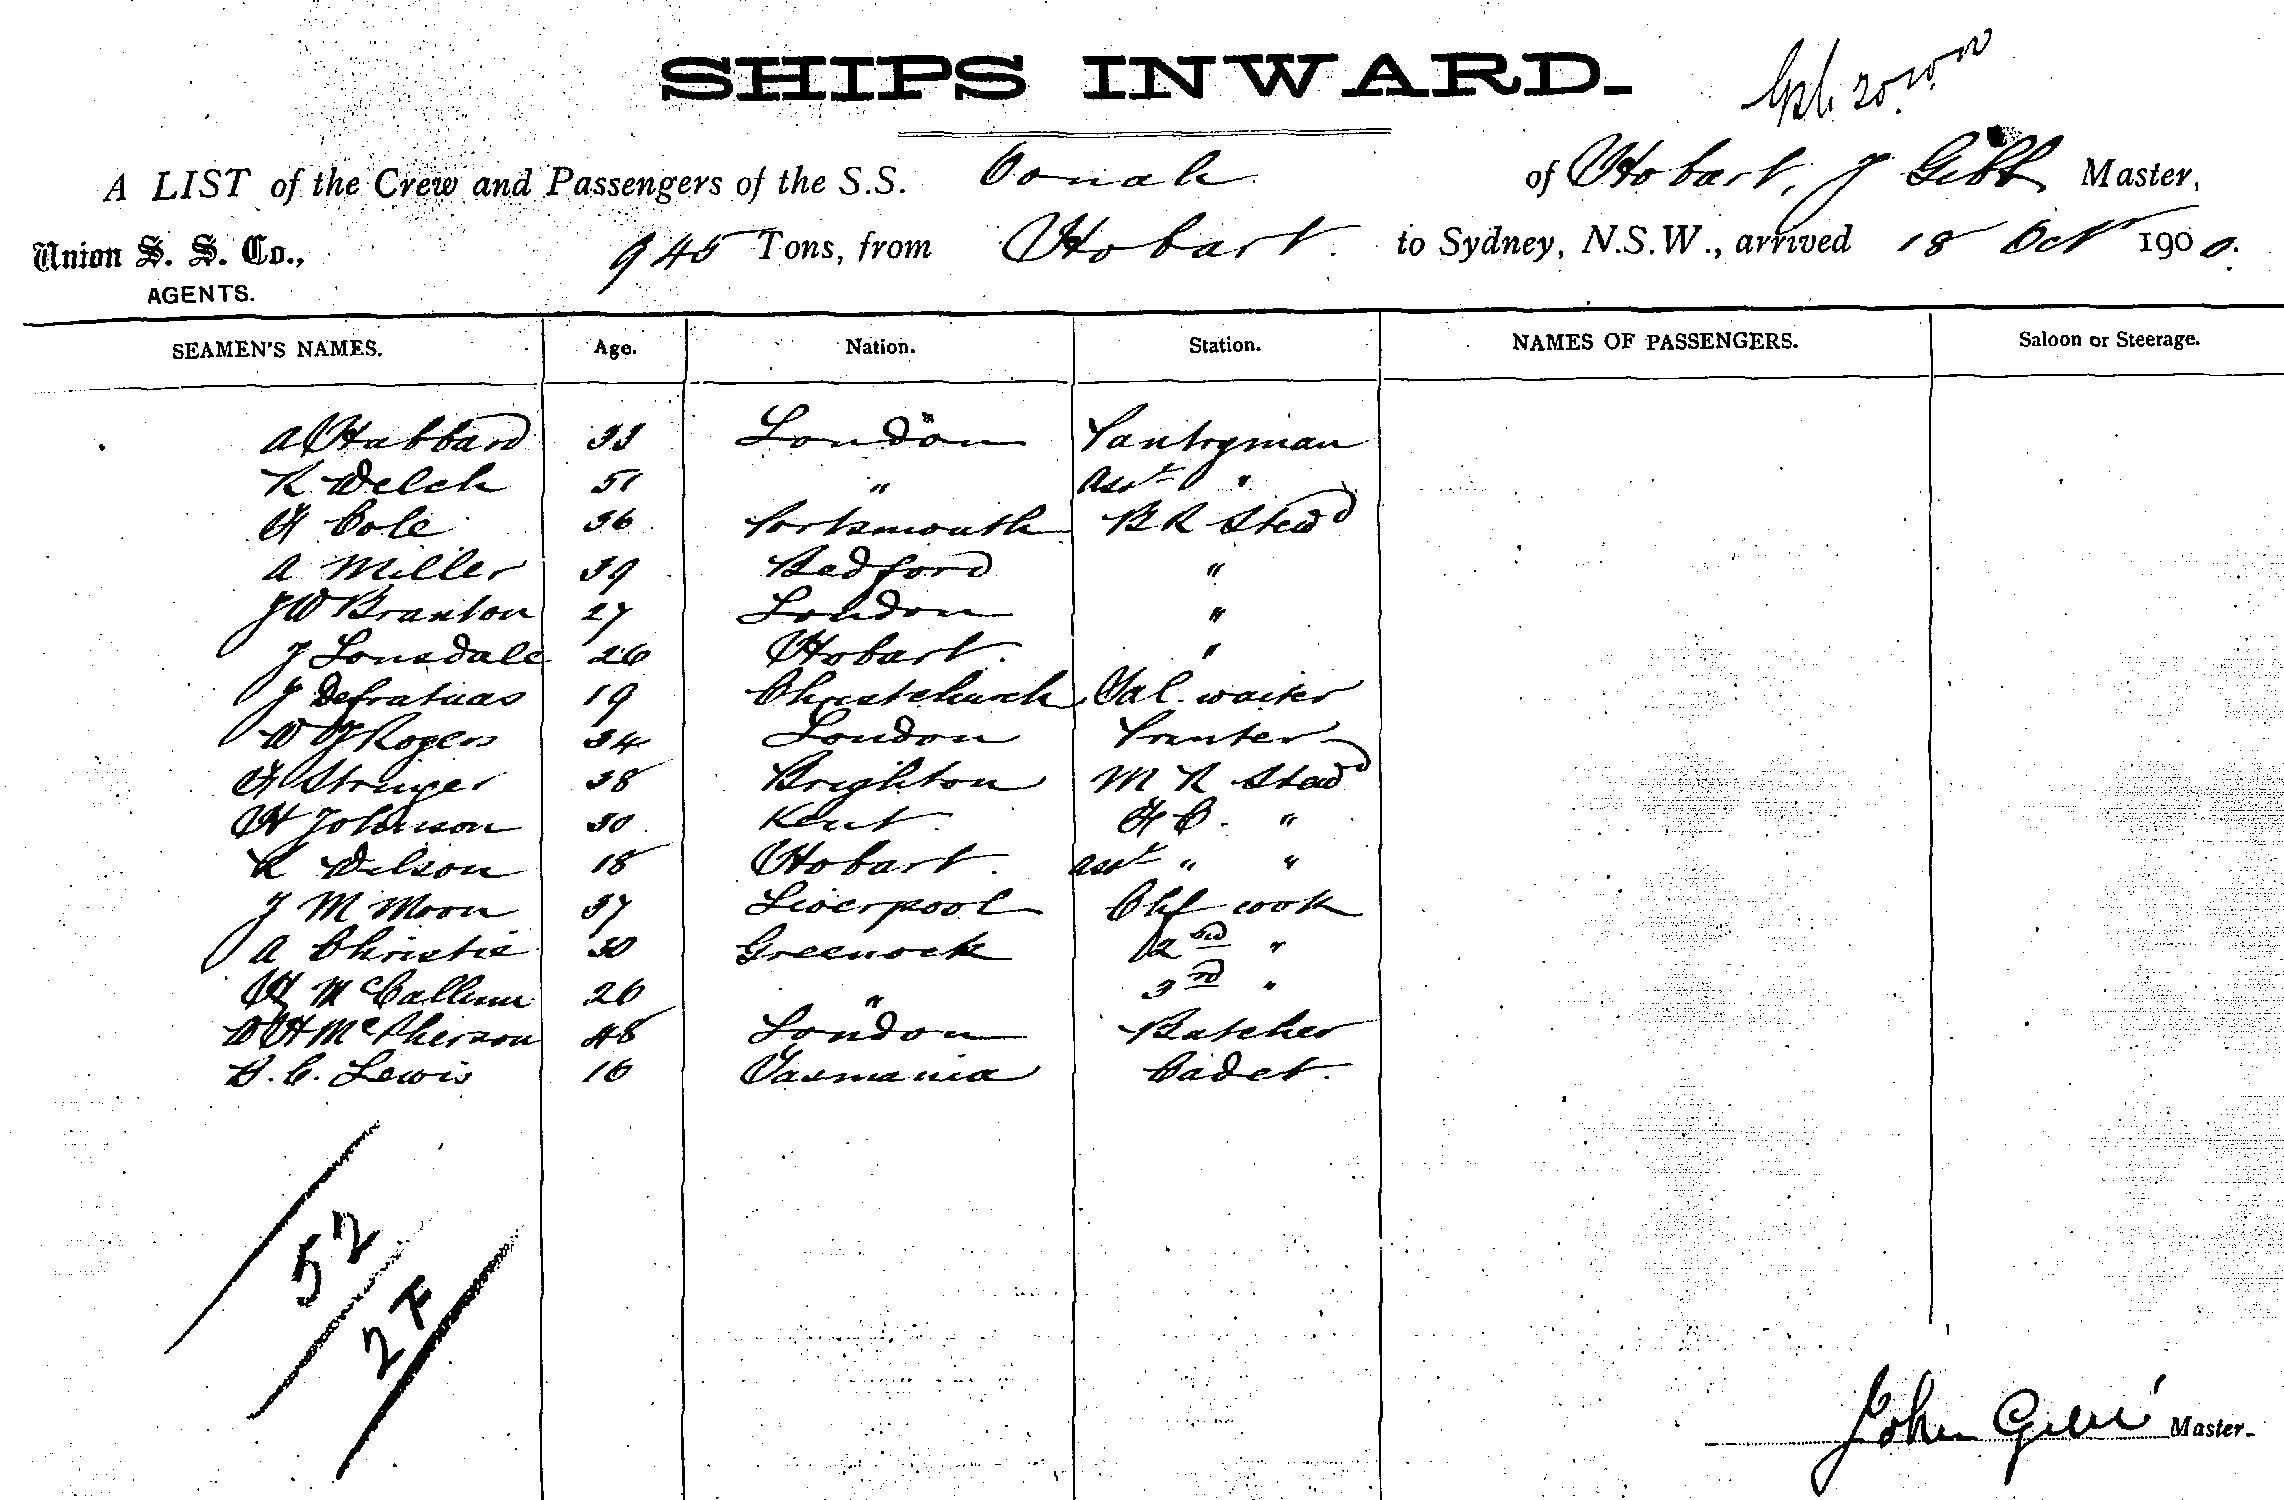 SHIPS INWARD.
A LIST of the Crew and Passengers of the S.S. Oonah of Hobart, J Gibb Master,
Union S. S. Co., 945 Tons, from Hobart. to Sydney, N.S.W., arrived 18 Oct 1900.
AGENTS.
SEAMEN'S NAMES. Age. Nation. Station. NAMES OF PASSENGERS. Saloon or Steerage.
A Hubbard 33 London Pantryman
R Welch 51 " Asst "
H Cole 36 Portsmouth B R Stewd
A Miller 39 Bedford "
J W Branton 27 London "
J Lonsdale 26 Hobart. "
J 19 Christchurch Sal. waiter
W J Rogers 34 London Printer
H Stringer 38 Brighton M R Stewd
H Johnson 30 Kent. F C. "
R Wilson 18 Hobart. Asst " "
J M Moon 37 Liverpool Chf cook
A Christie 30 Greenock 2nd "
H McCallum 26 " 3rd "
W H McPherson 48 London Butcher
C. Lewis 16 Tasmania Cadet.
52
2 F
John Gibb Master.